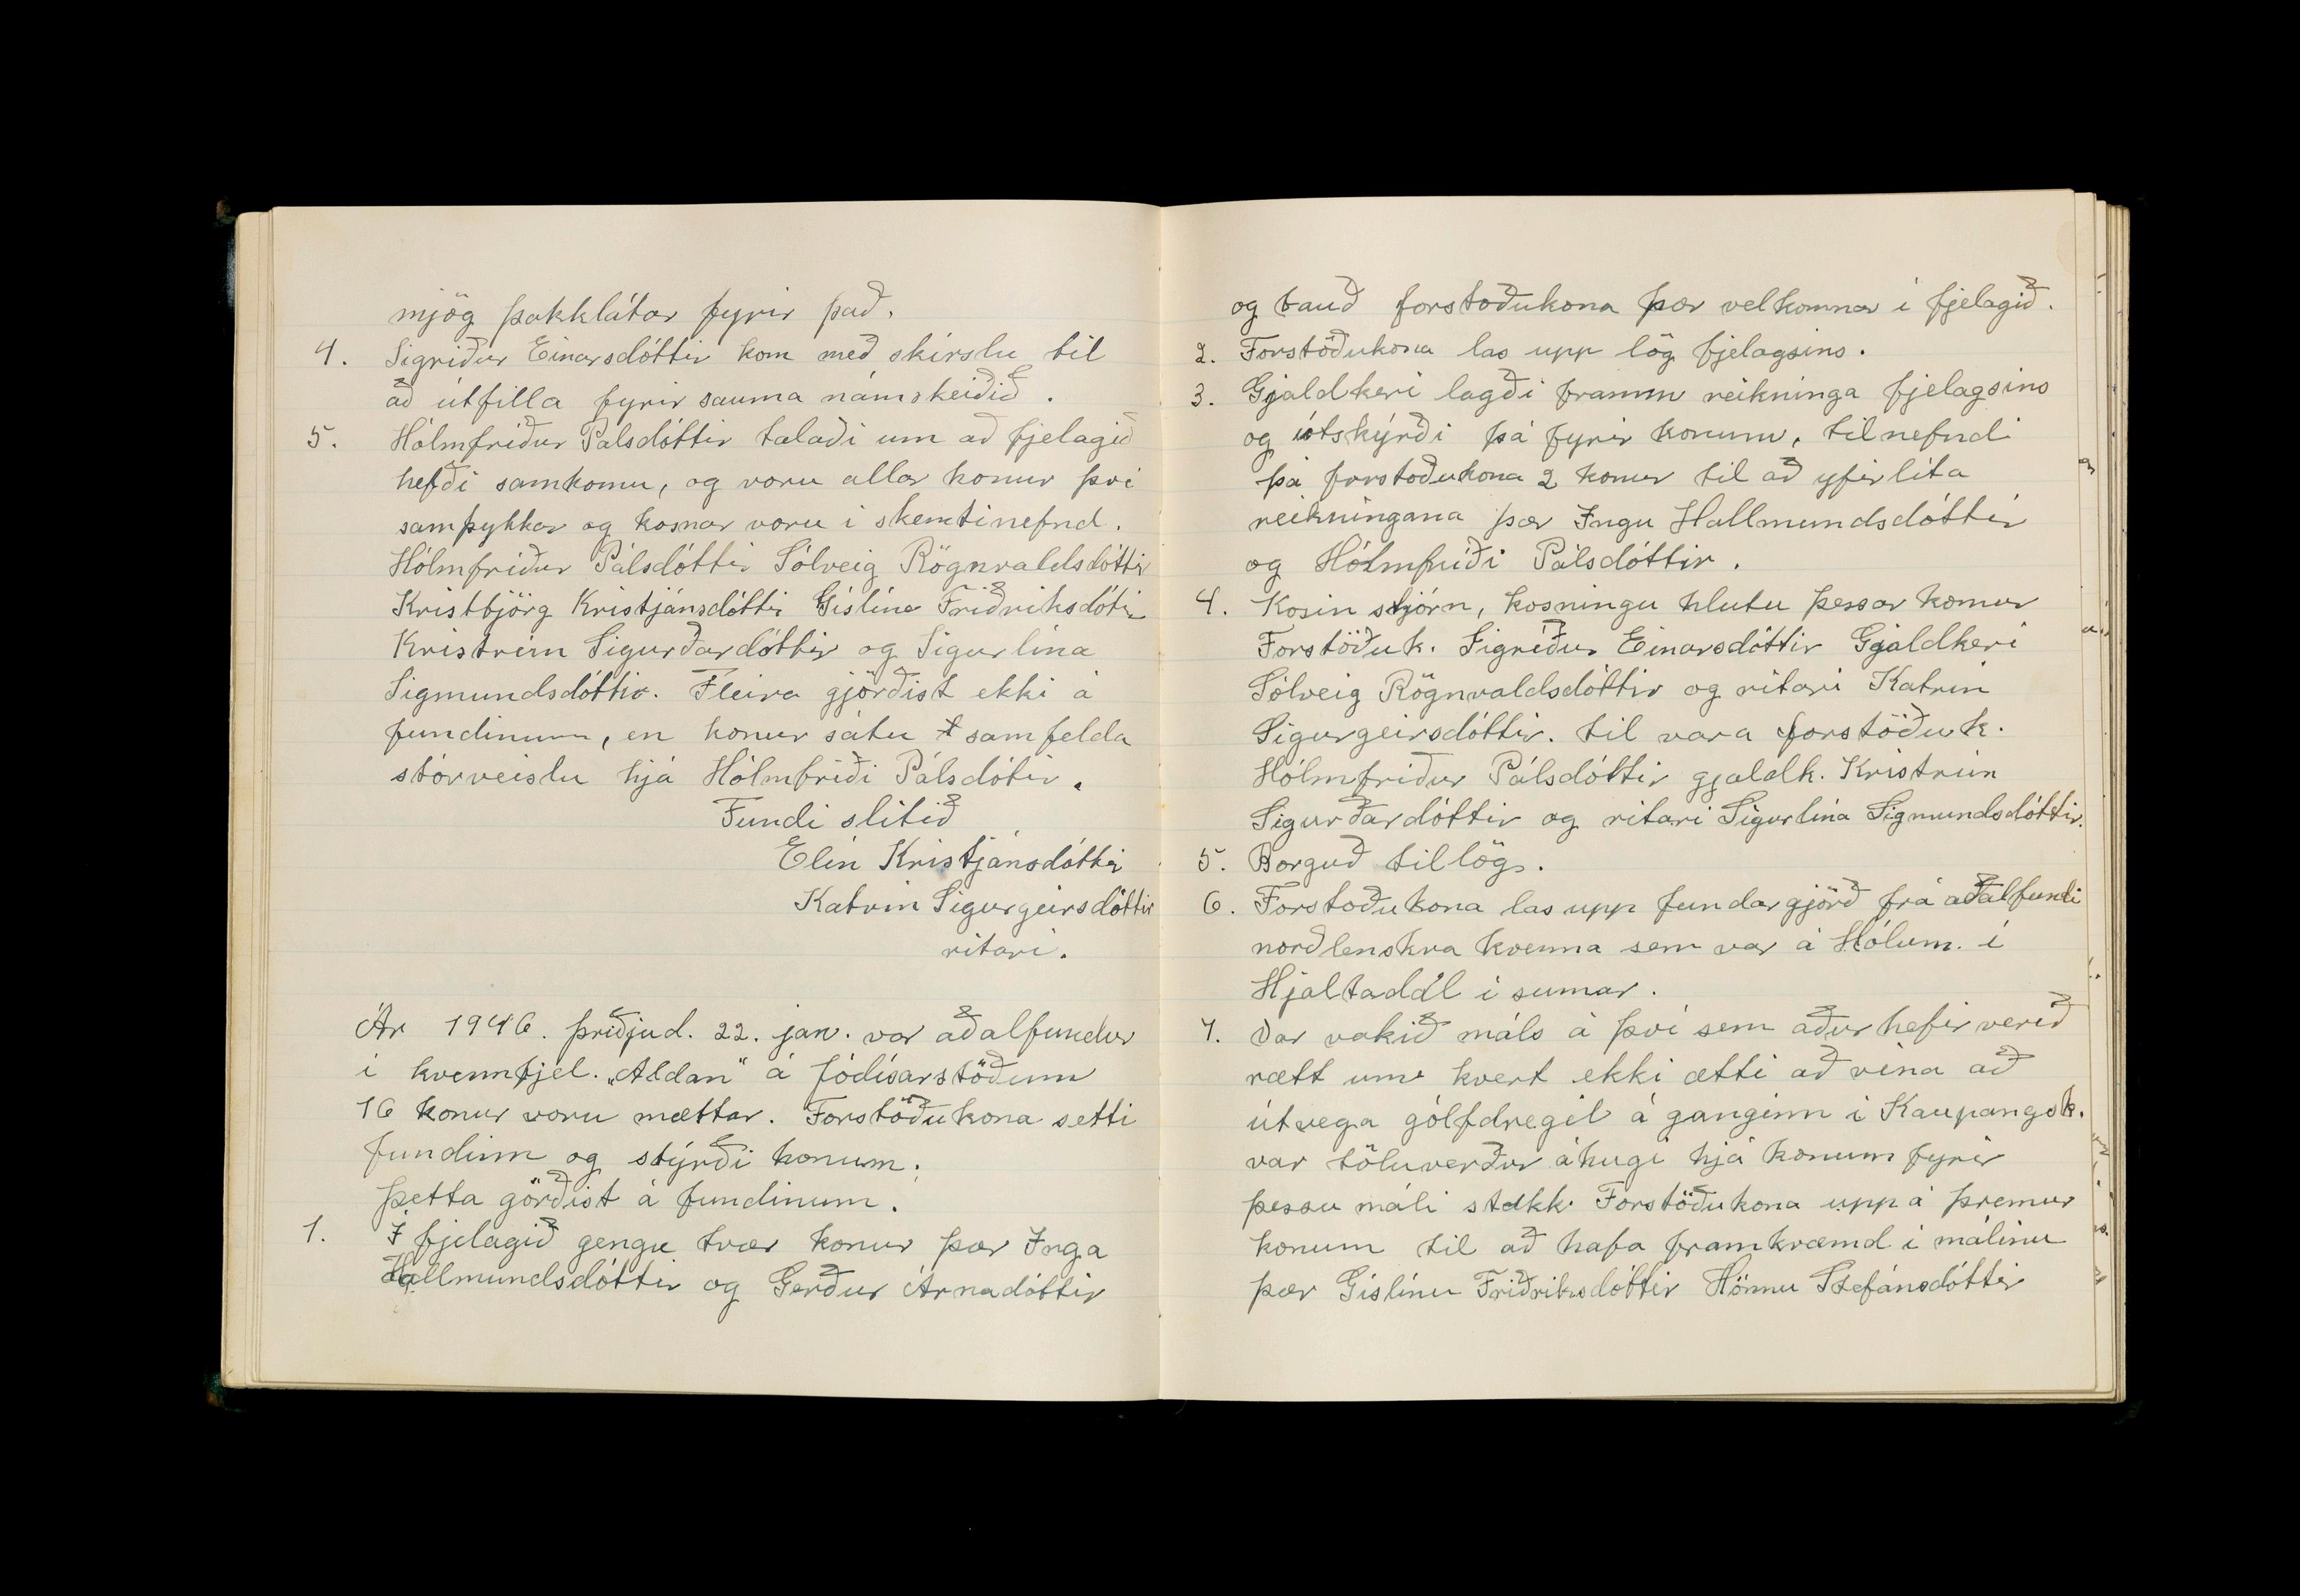 mjög þakklátar fyrir það.
4. Sigríður Einarsdóttir kom með skírslu til
að útfilla fyrir sauma námskeiðið.
5. Hólmfríður Pálsdóttir talaði um að fjelagið
hefði samkomu, og voru allar konur því
samþykkar og kosnar voru í skemtinefnd.
Hólmfríður Pálsdóttir Sólveig Rögnvaldsdóttir
Kristbjörg Kristjánsdóttir Gíslína Friðriksdótir
Kristrún Sigurðardóttir og Sigurlína
Sigmundsdóttir. Fleira gjörðist ekki á
fundinum, en konur sátu samfelda
stórveislu hjá Hólmfríði Pálsdótir.
Fundi slitið
Elín Kristjánsdóttir
Katrín Sigurgeirsdóttir
ritari.
Ár 1946. þriðjud. 22. jan. var aðalfundur
í kvennfjel. „Aldan" á Jódísarstöðum
16 konur voru mættar. Forstöðukona setti
fundinn og stýrði honum.
Þetta görðist á fundinum.
1. Í fjelagið gengu tvær konur þær Inga
Hallmundsdóttir og Gerður Árnadóttir
og bauð forstoðukona þær velkomnar í fjelagið.
2. Forstöðukona las upp lög fjelagsins.
3. Gjaldkeri lagði framm reikninga fjelagsins
og útskýrði þá fyrir konum, tilnefndi
þá forstoðukona 2 konur til að yfirlíta
reikningana þær Ingu Hallmundsdóttir
og Hólmfríði Pálsdóttir.
4. Kosin stjórn, kosningu hlutu þessar konur
Forstöðuk. Sigríður Einarsdóttir Gjaldkeri
Sólveig Rögnvaldsdóttir og ritari Katrín
Sigurgeirsdóttir. til vara forstöðuk.
Hólmfríður Pálsdóttir gjaldk. Kristrún
Sigurðardóttir og ritari Sigurlína Sigmundsdóttir.
5. Borguð tillög.
6. Forstoðukona las upp fundargjörð frá aðalfundi
norðlenskra kvenna sem var á Hólum í
Hjaltadal í sumar.
7. Var vakið máls á því sem aður hefir verið
rætt um hvert ekki ætti að vina að
útvega gólfdregil á ganginn í Kaupangsk.
var töluverður áhugi hjá konum fyrir
þessu máli stakk Forstöðukona uppá þremur
konum til að hafa framkvæmd í málinu
þær Gíslínu Friðriksdóttir Hönnu Stefánsdóttir